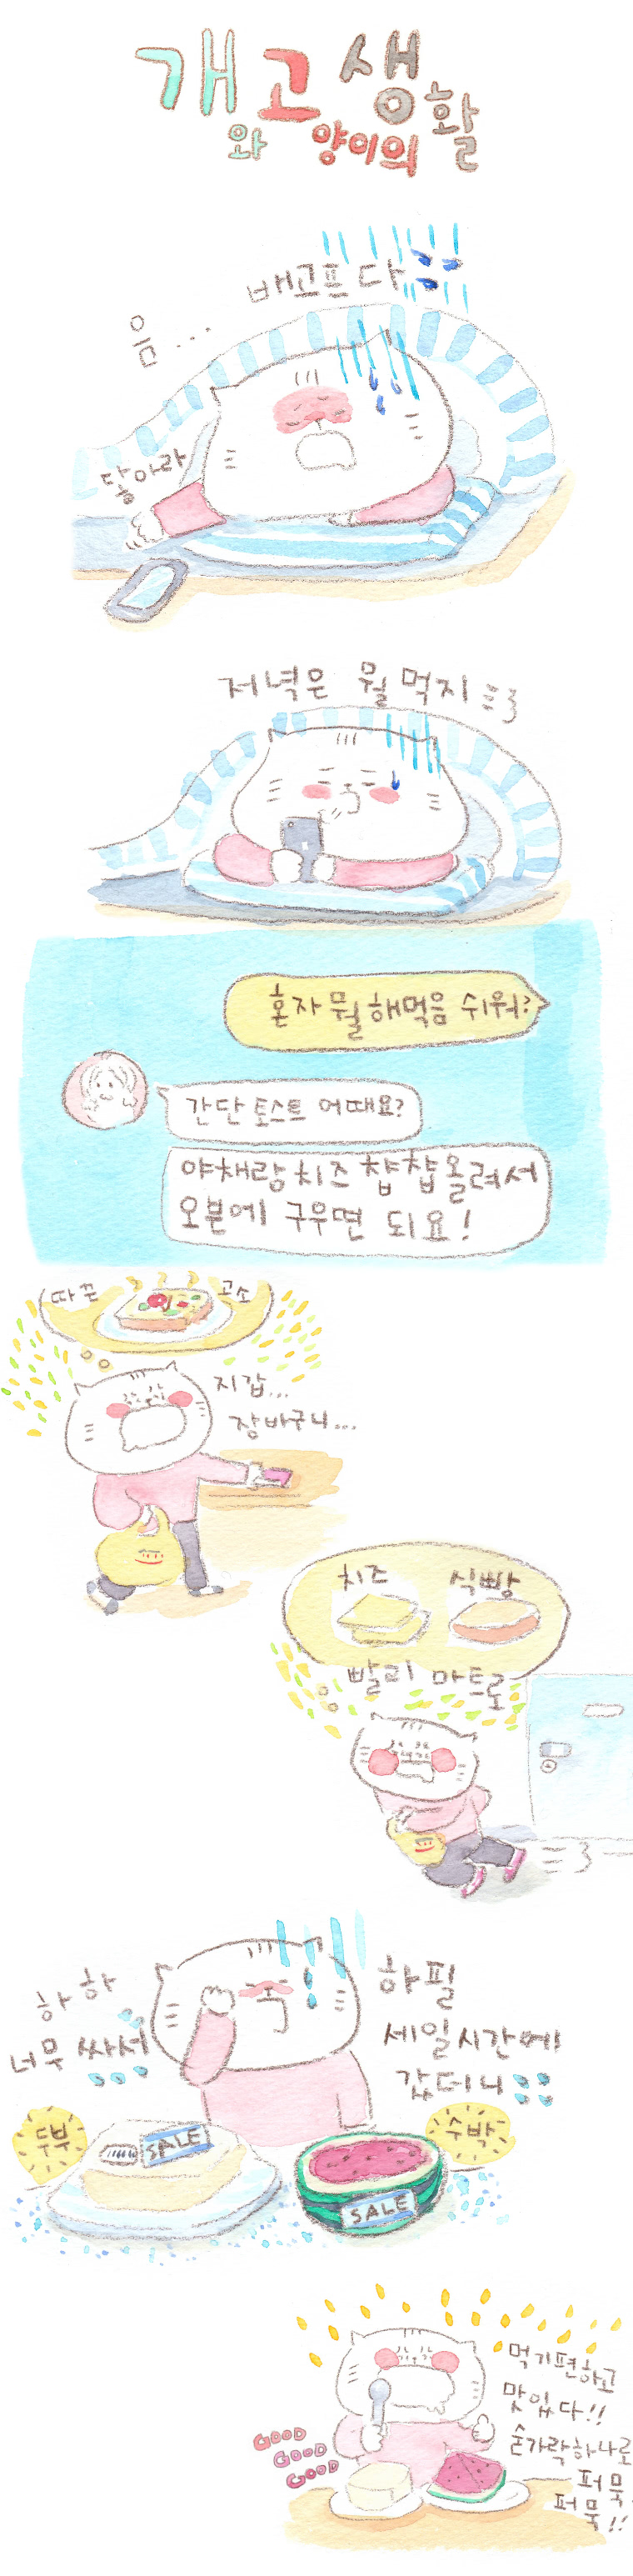 개와 고양이의 생활
배고프다
음...
닿아라
저녁은 뭘 먹지
혼자 뭘 해먹음 쉬워?
간단 토스트 어때요?
야채랑 치즈 챱챱 올려서
오븐에 구우면 되요!
따끈
고소
지갑...
장바구니...
치즈
식빵
빨리 마트로
하하
너무 싸서
하필
세일시간에
갔더니
두부
SALE
수박
SALE
먹기편하고
맛있다!!
숟가락하나로
퍼묵
퍼묵!!
GOOD
GOOD
GOOD